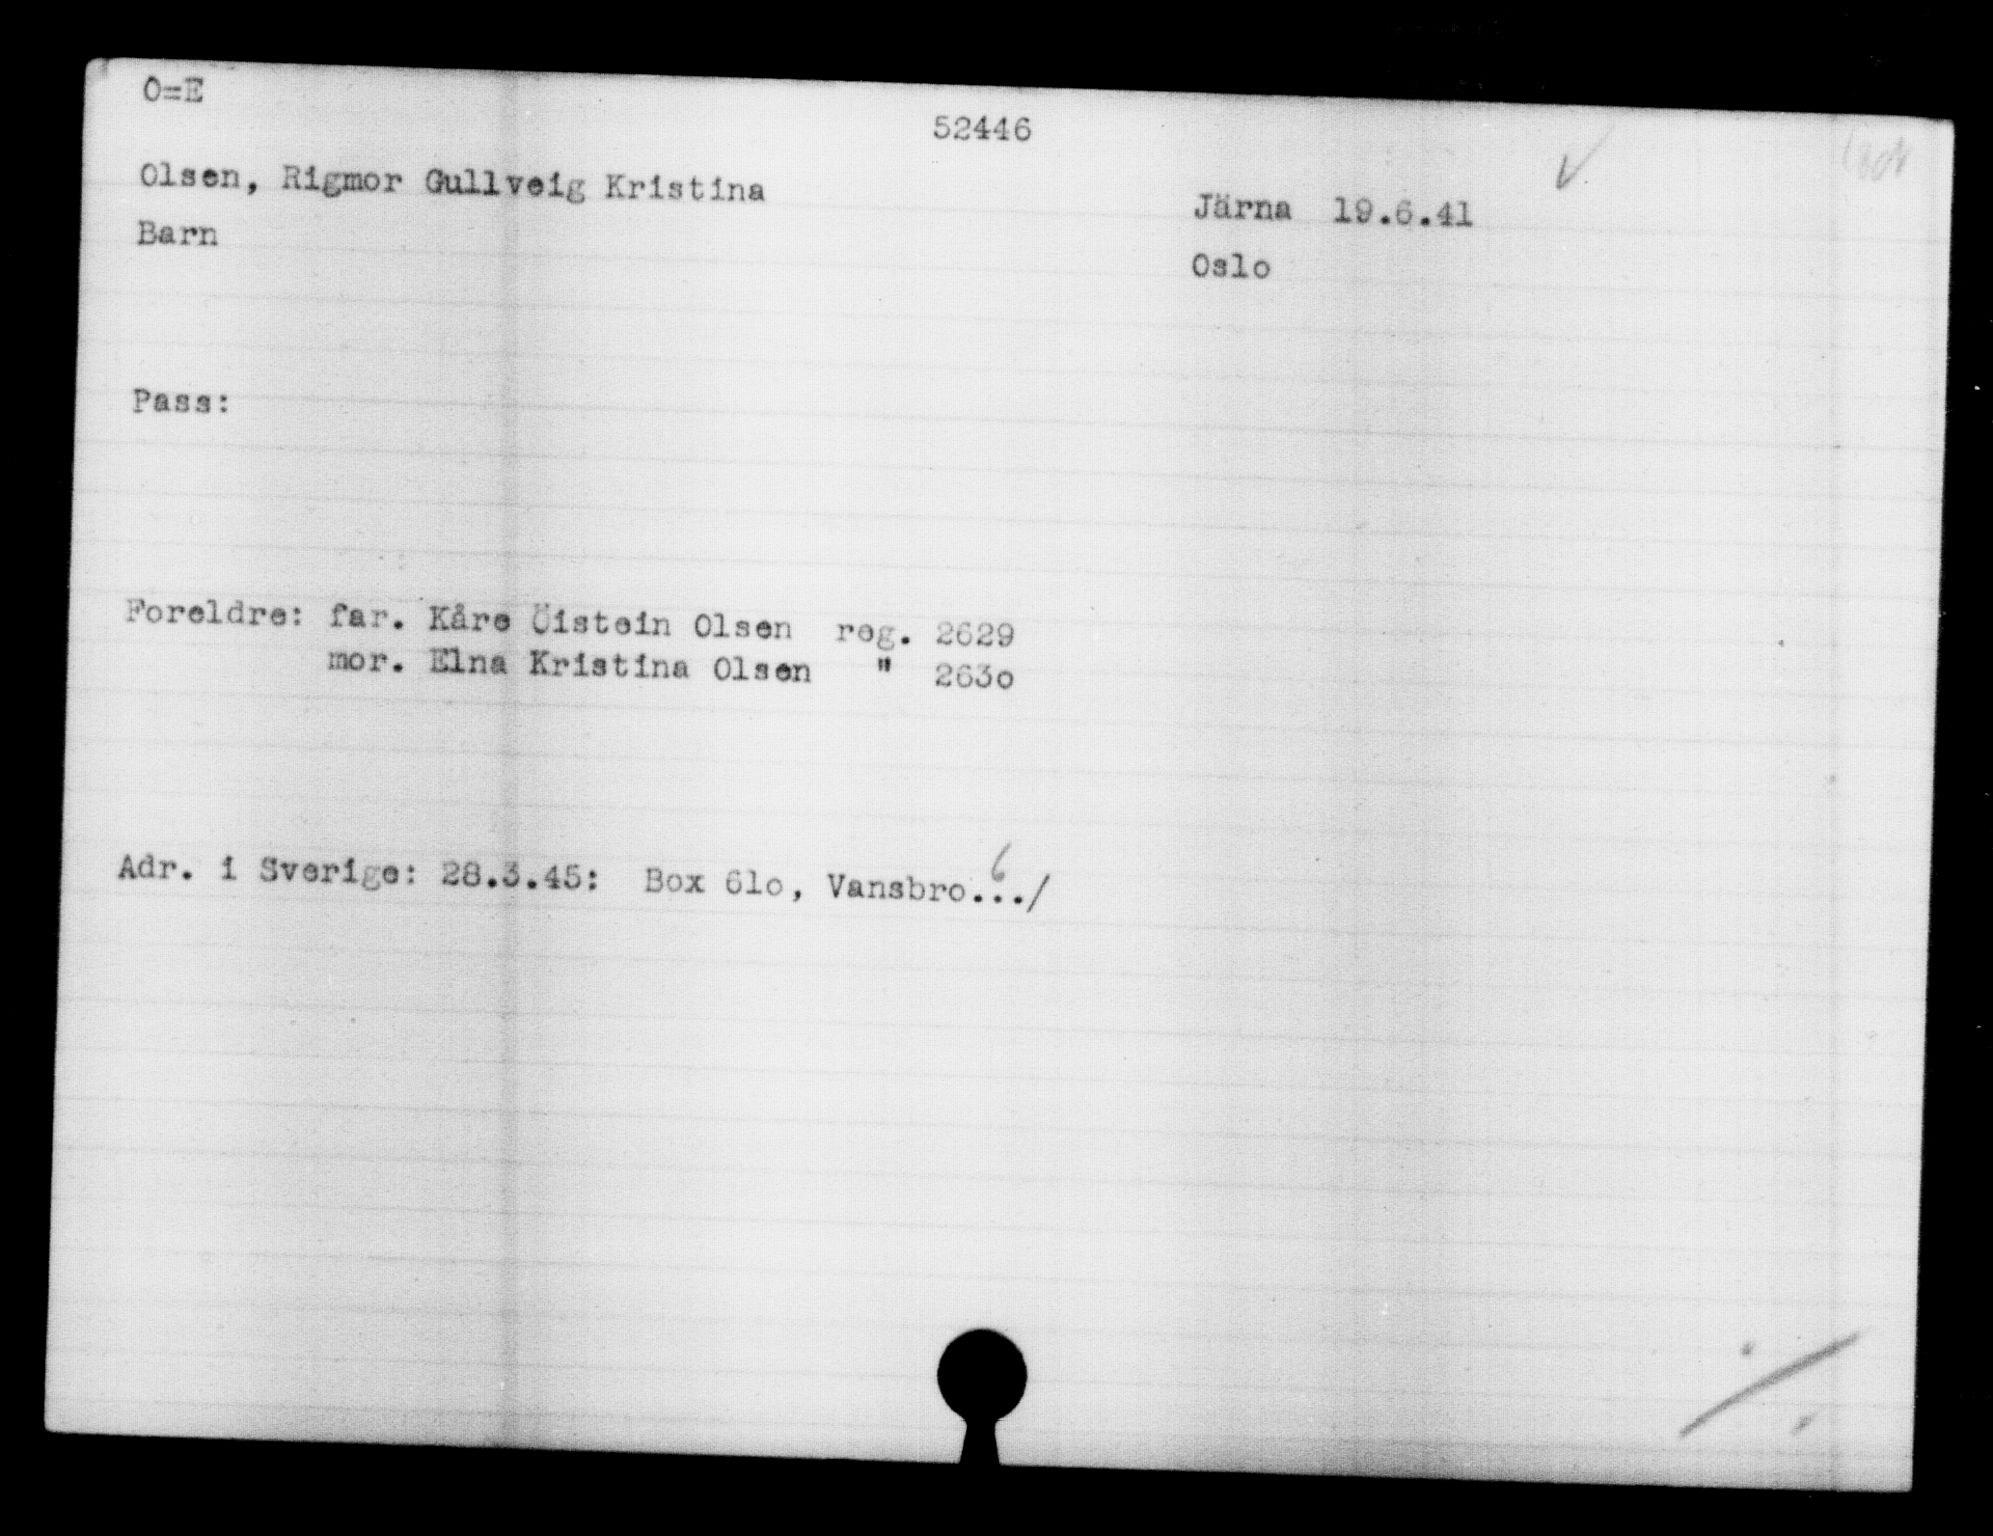 O=E
52446
Olsen, Rigmor Gullveig Kristina
Järna 19.6.41
Barn
Oslo
Pass:
Foreldre: far. Kåre Öistein Olsen reg. 2629
mor. Elna Kristina Olsen " 263o
Adr. i Sverige: 28.3.45: Box 61o, Vansbro.../
6